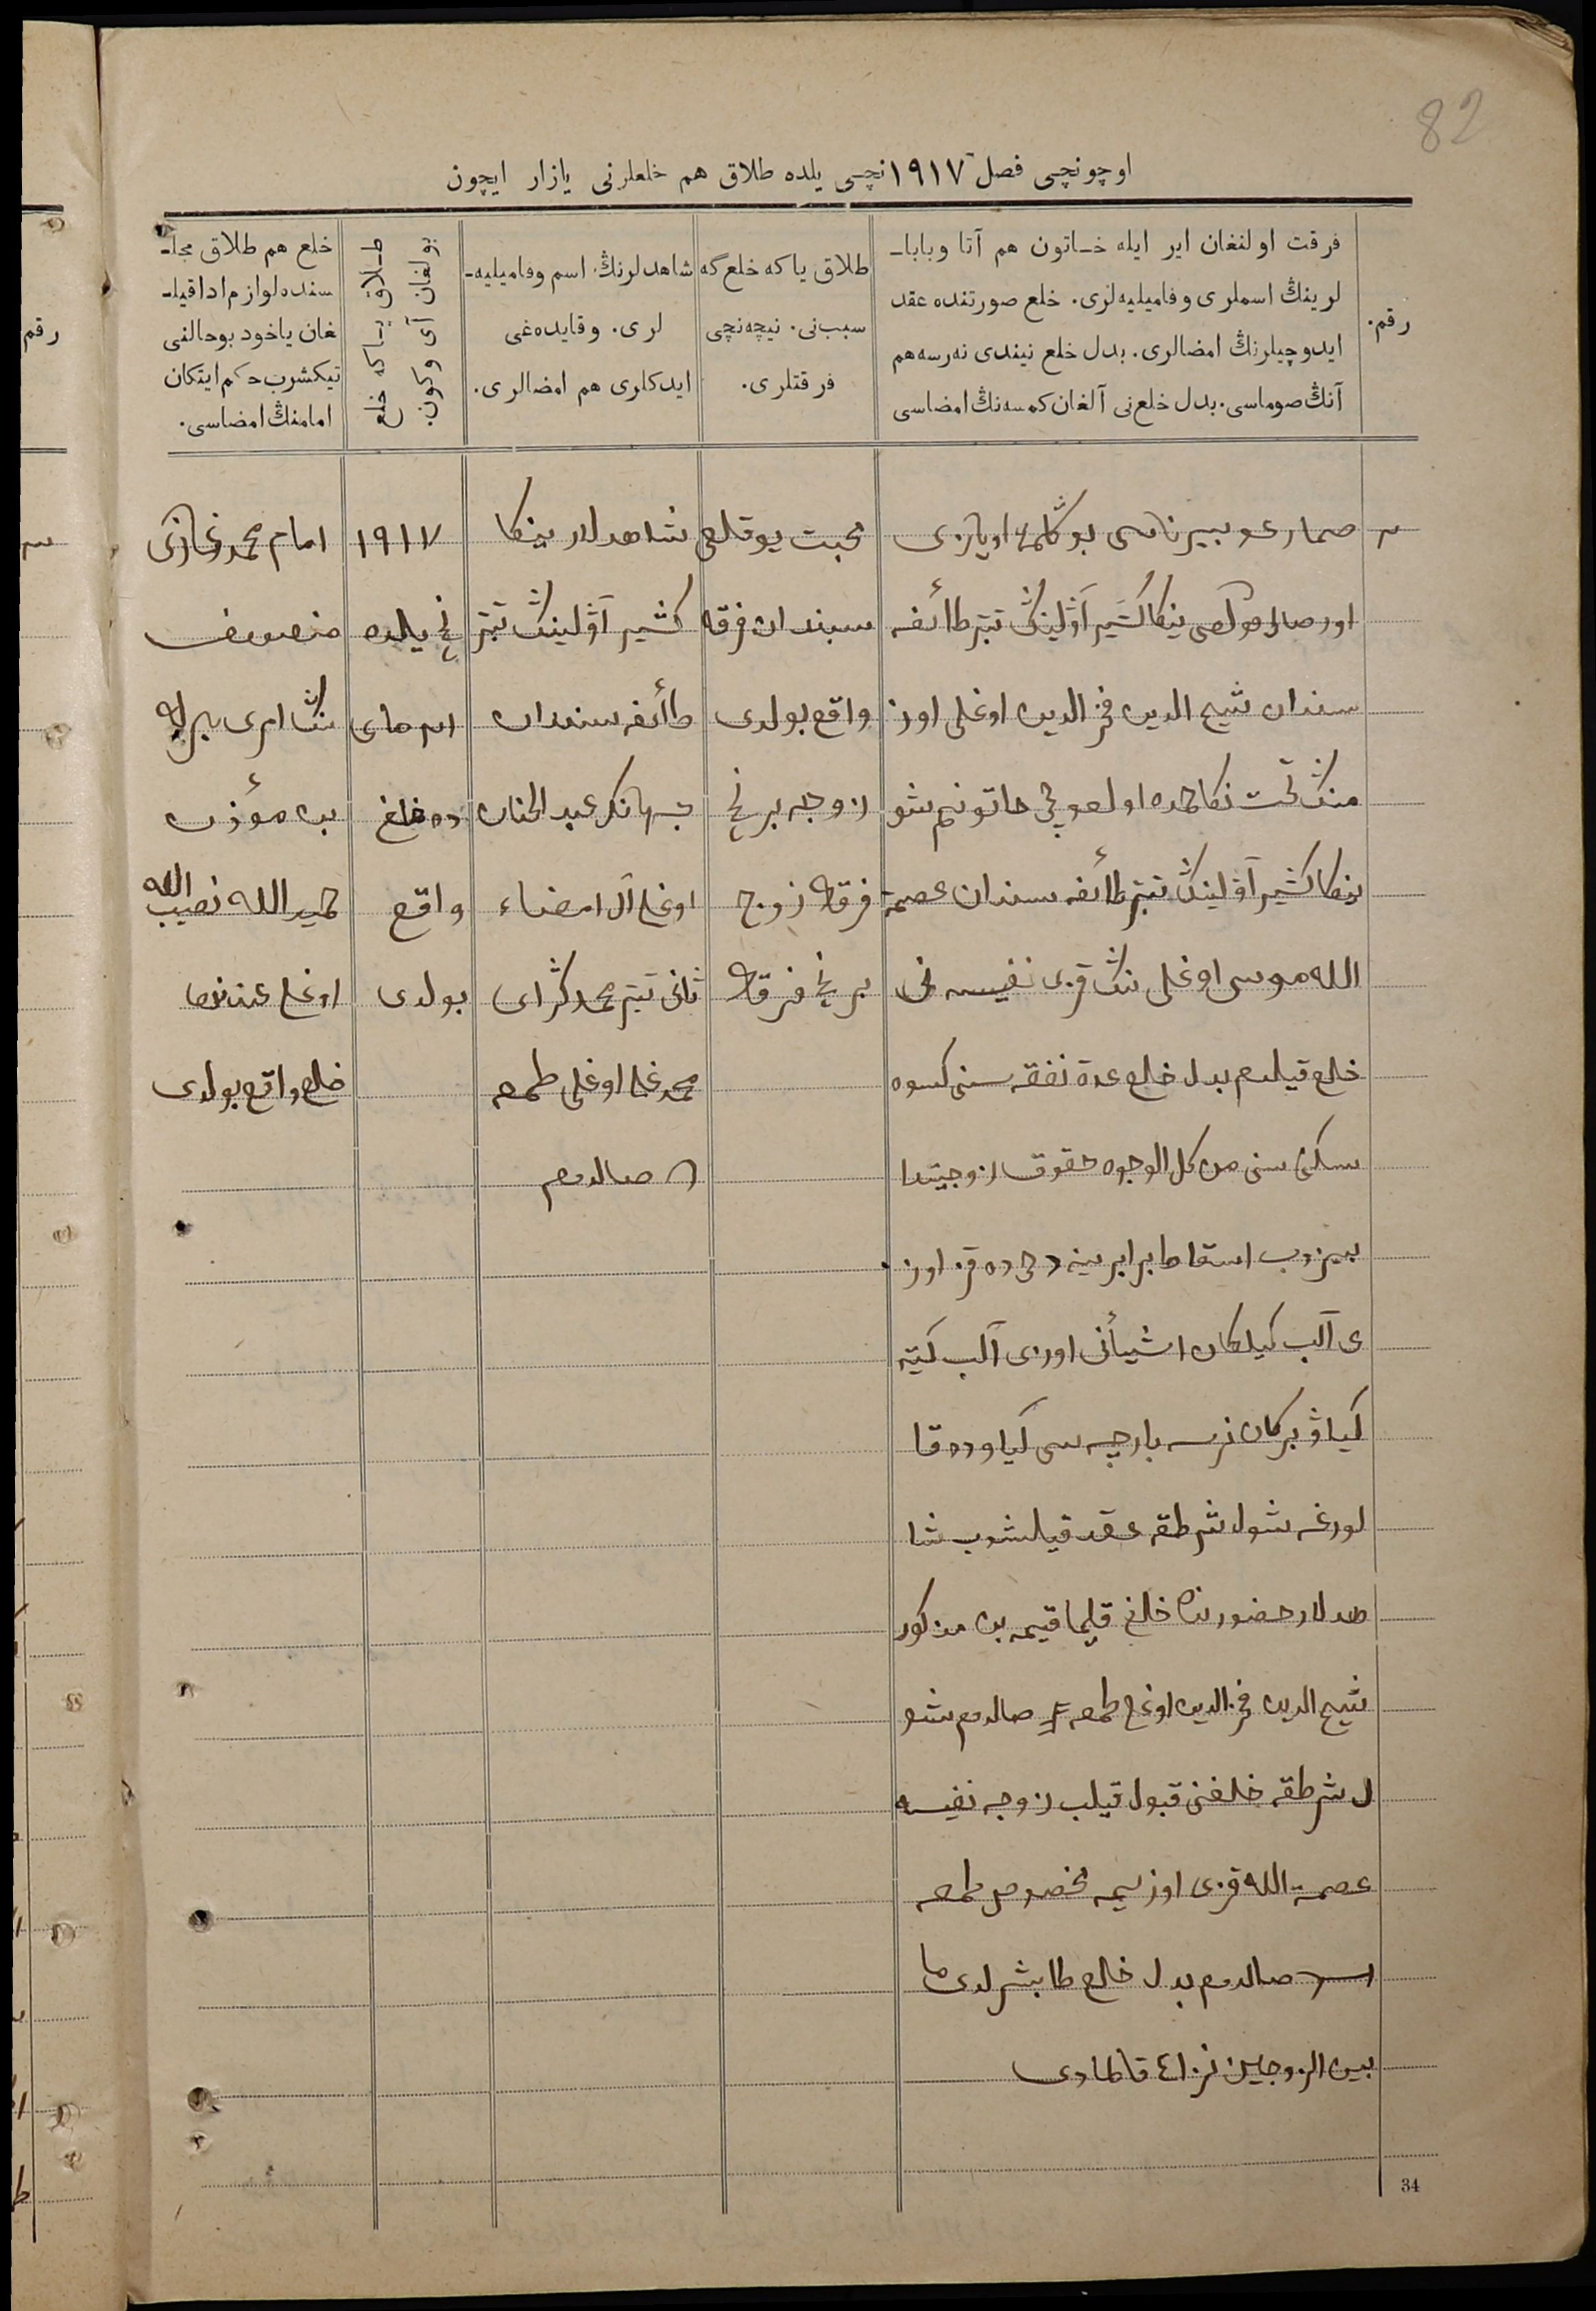 82
اوچونچی فصل ١٩١٧ نچی یلده طلاق هم خلعلرنی یازار ایچون
رقم.
فرقت اولنغان ایر ایله خاتون هم آتا وبابا-
لرینڭ اسملری وفامیلیه‌لری. خلع صورتنده عقد
ایدوچیلرنڭ امضالری. بدل خلع نیندی نه‌رسه هم
آنڭ صوماسی. بدل خلع‌نی آلغان کمسه‌نڭ امضاسی
طلاق یا که خلع‌گه
سبب‌نی. نیچه‌نچی
فرقتلری.
شاهدلرنڭ اسم وفامیلیه-
لری. وقایده‌غی
ایدکلری هم امضالری.
طلاق یاکه خلع
بولغان آی وکون.
خلع هم طلاق مجلـ-
سنده لوازم ادا قیلـ-
غان یاخود بو حالنی
تیکشرب حکم ایتکان
امامنڭ امضاسی.
صمار غوبیرناسی بوگلمه اویازی
اورصالی ینکا کشیر آولینڭ تبتر طائفه
سندان شیخ الدین فخرالدین اوغلی اوز
منڭ تحت نکاحمده اولغوچی خاتونم شو
ینکا کشیر آولینڭ تبتر طائفه سندان عصمة
الله موسی اوغلی ننڭ قزی نفیسه نی
خلع قیلدم بدل خلع عدة نفقه سنی کسوه
سکنی سنی من کل الوجوه حقوق زوجیتدا
اسقاط برابرینه
ی آلب کیلکان اشیأنی اوزی آلب کیته
کیاو بیرکان نرسه بارچه سی کیاوده قا
لورغه شول شرطقه عقد قیلشوب شا
هدلار حضورنده خلع مذکور
شیخ الدین فخرالدین اوغلی طمغه صالدم شو
ل شرطقه خلعنی قبول قیلب زوجه نفیسه
عصمة الله قزی اوزیمه مخصوص طمغه
صالدم بدل خلع طابشرلدی ما
بین الزوجین نزاع قالمادی
محبت یوقلغی
سبندان فرقه
واقع بولدی
زوجه برنچی
فرقه زوج
برنچی فرقه
شاهدلار ینکا
کشیر آولینڭ تبتر
طائفه سندان
جهانکر عبدالحنان
اوغلی امضاء
ثانی تبتر محمدکرای
محمدغلی اوغلی طمغه
صالدم
١٩١٧
نچی یلده
مای
ده خلع
واقع
بولدی
امام محمد
منصوف
ننڭ امری برله
مؤذن
حمیدالله نصیب الله
اوغلی
خلع واقع بولدی
رقم
34